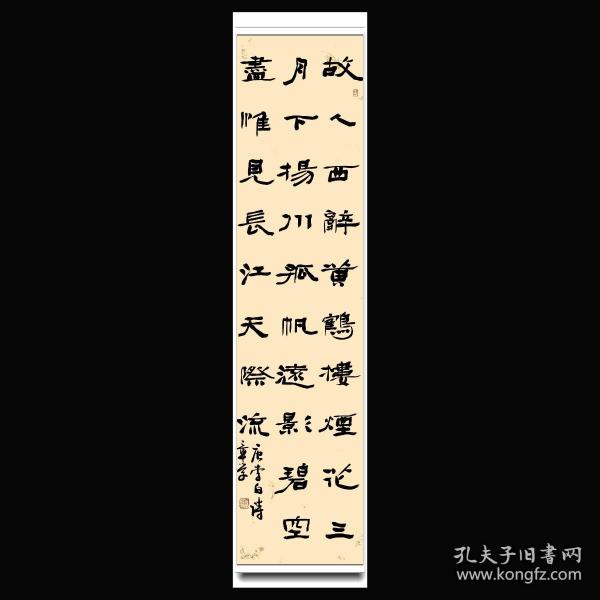 故人西辭黃鶴樓煙花三
月下揚州孤帆遠影碧空
盡惟見長江天際流
唐李白詩
孔夫子旧書网
www.kongfz.com